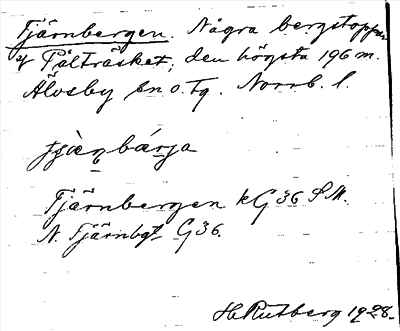 Tjärnbergen. Några bergstoppar
vf Pålträsket, den högsta 196 m.
Älvsby sn o. tg. Norrb. l.
Tjärnbergen kG 36 SM.
N. Tjärnbgt G36.
H Rutberg 1928.